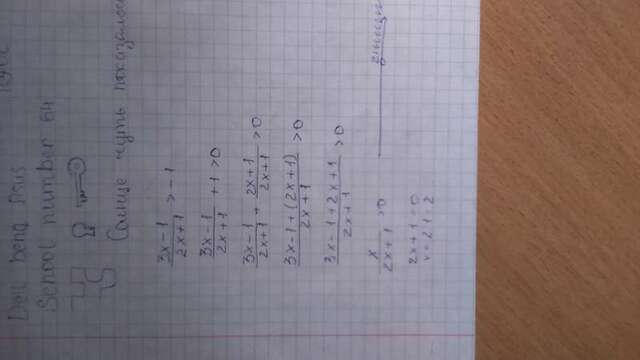 Dell benq Asus
School number 64
Солнце чуть показалось
3x-1/2x+1 > -1
3x-1/2x+1 + 1 > 0
3x-1/2x+1 + 2x+1/2x+1 > 0
3x-1+(2x+1)/2x+1 > 0
3x-1+2x+1/2x+1 > 0
x/2x+1 > 0
2x+1=0